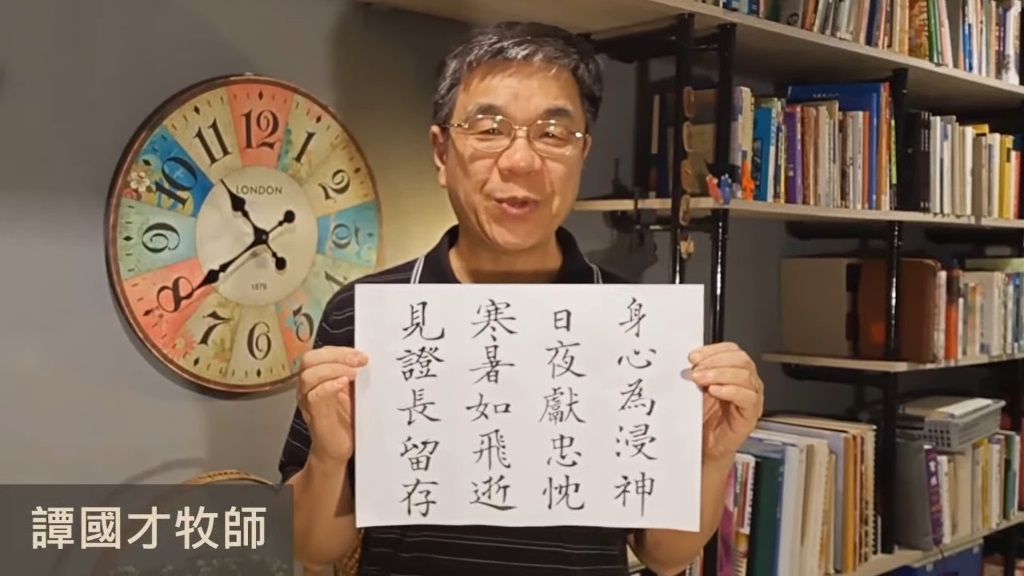 12
11
1
10
2
9
8
7
6
5
LONDON
1879
身心為浸神
日夜獻忠忱
寒暑如飛逝
見證長留存
譚國才牧師